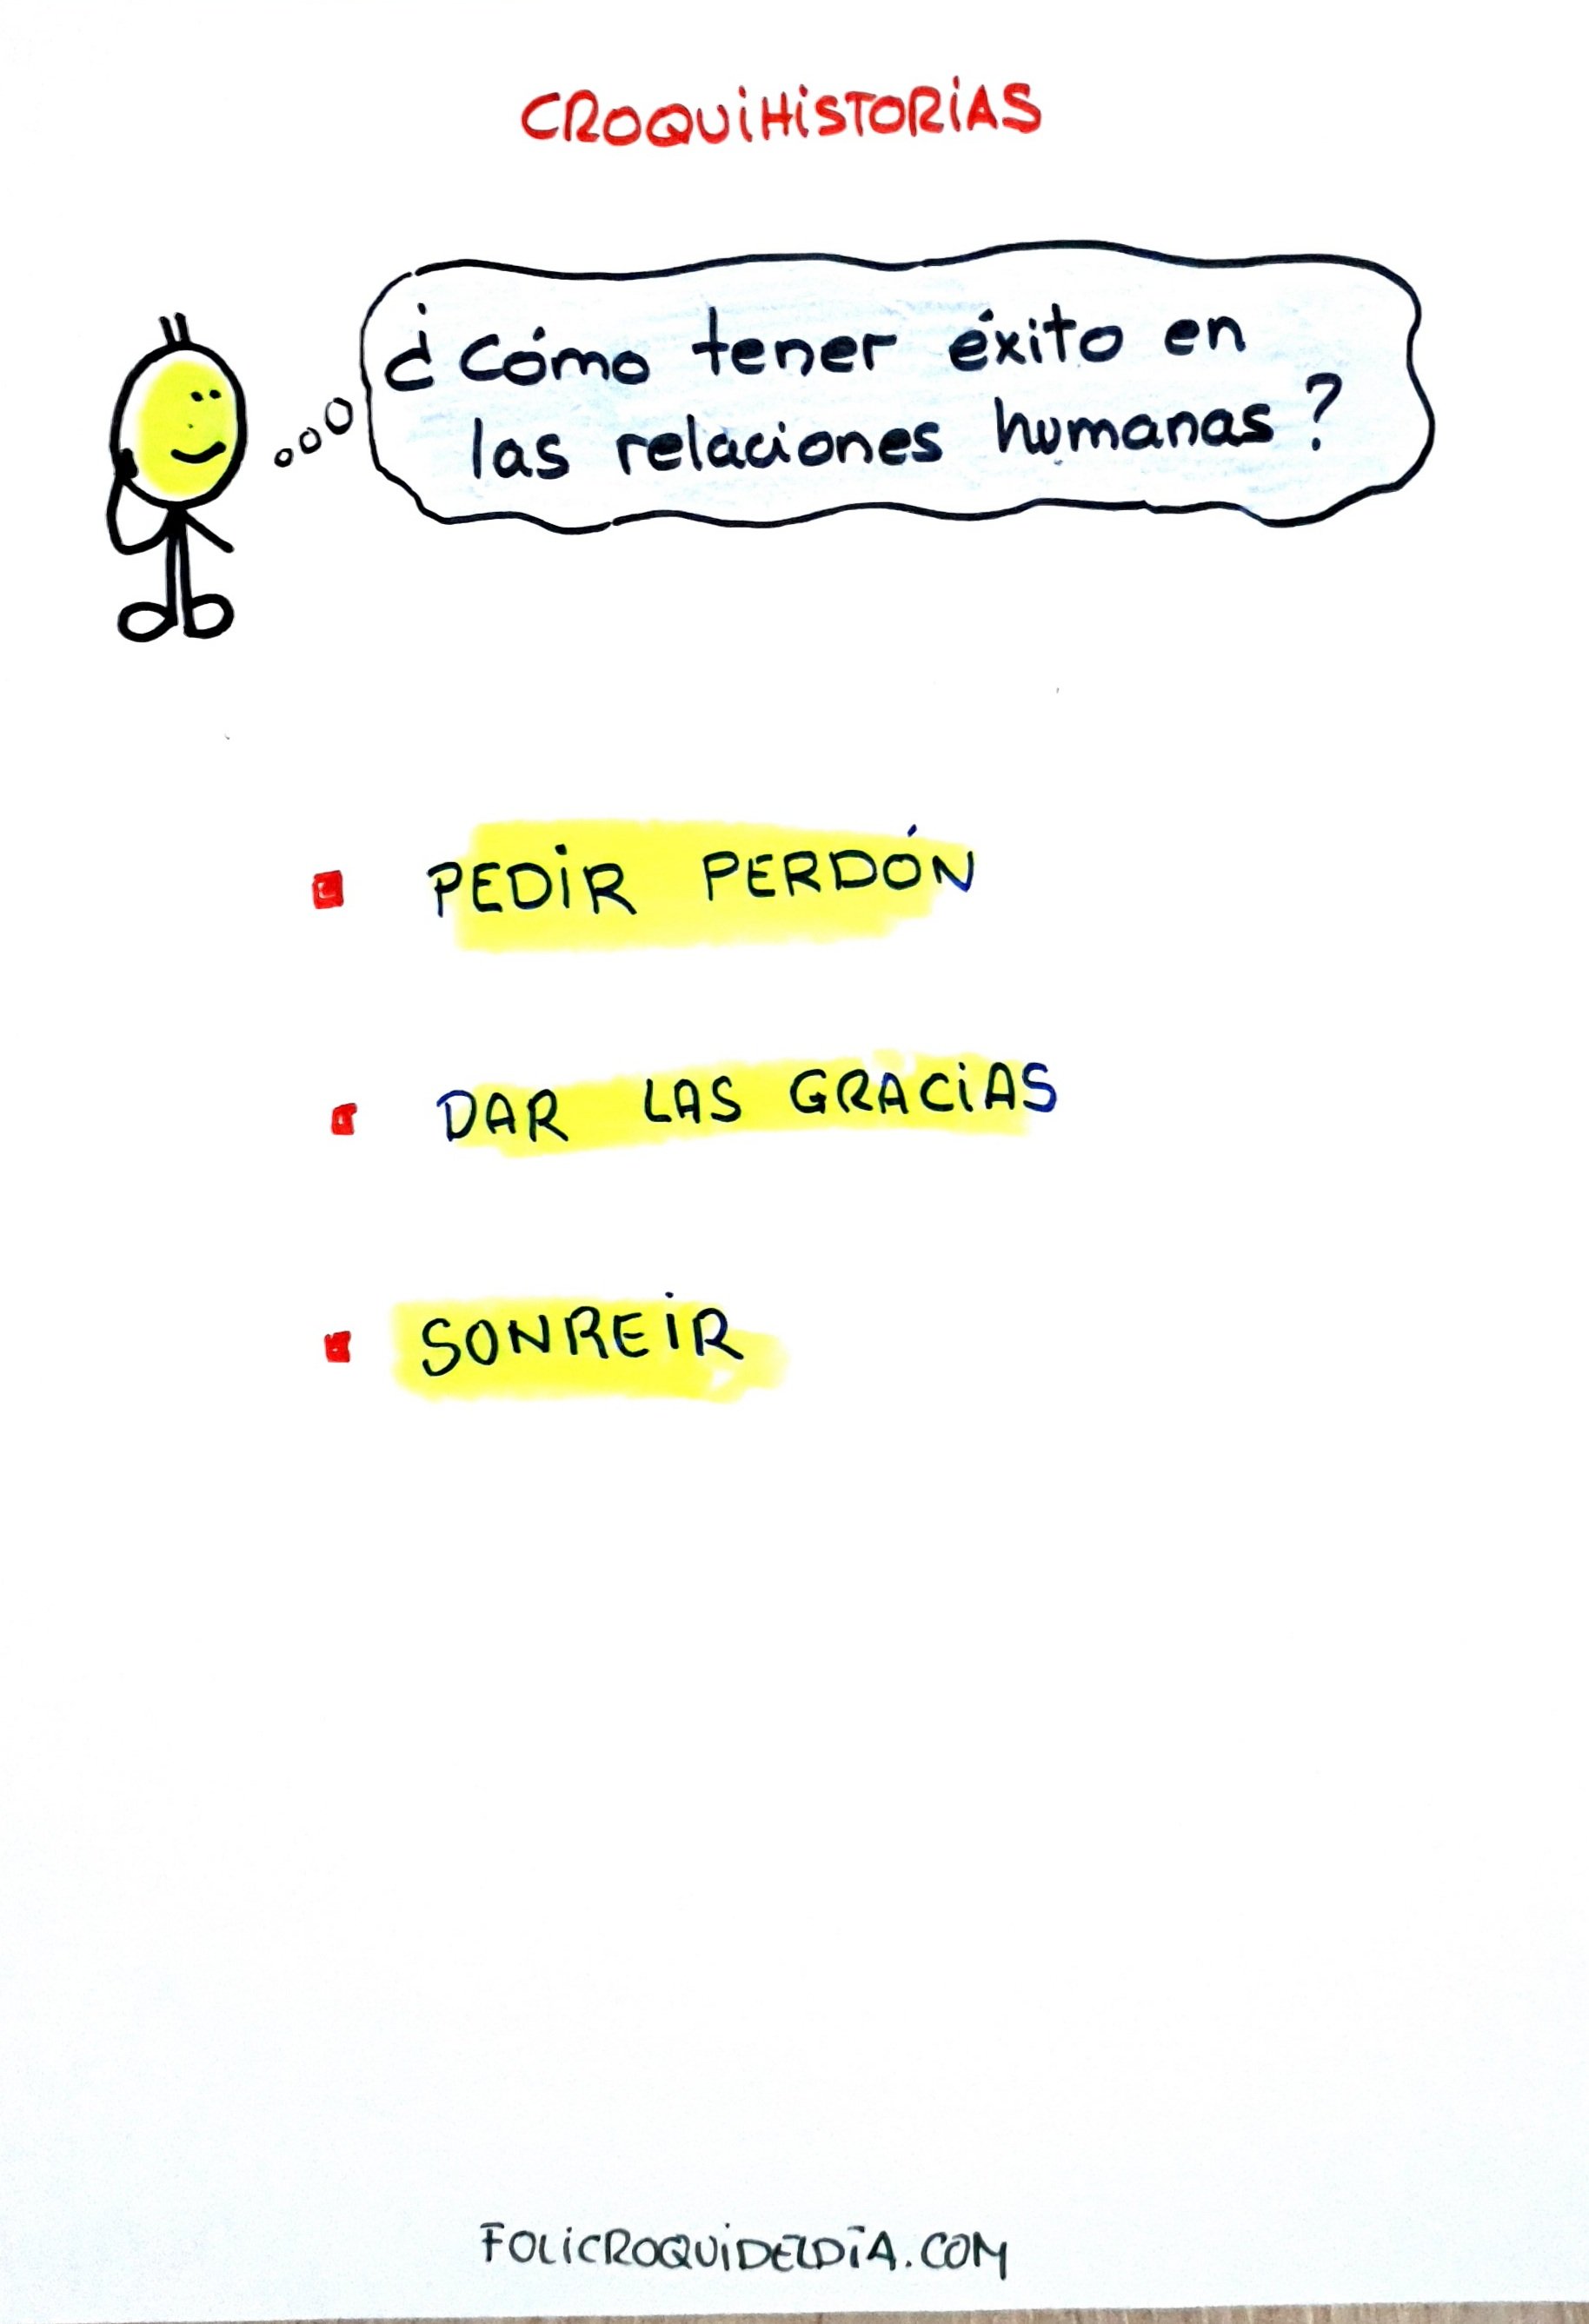 CROQUIHISTORIAS
¿Cómo tener éxito en
las relaciones humanas?
PEDIR PERDÓN
DAR LAS GRACIAS
SONREIR
FOLICROQUIDELDÍA.COM